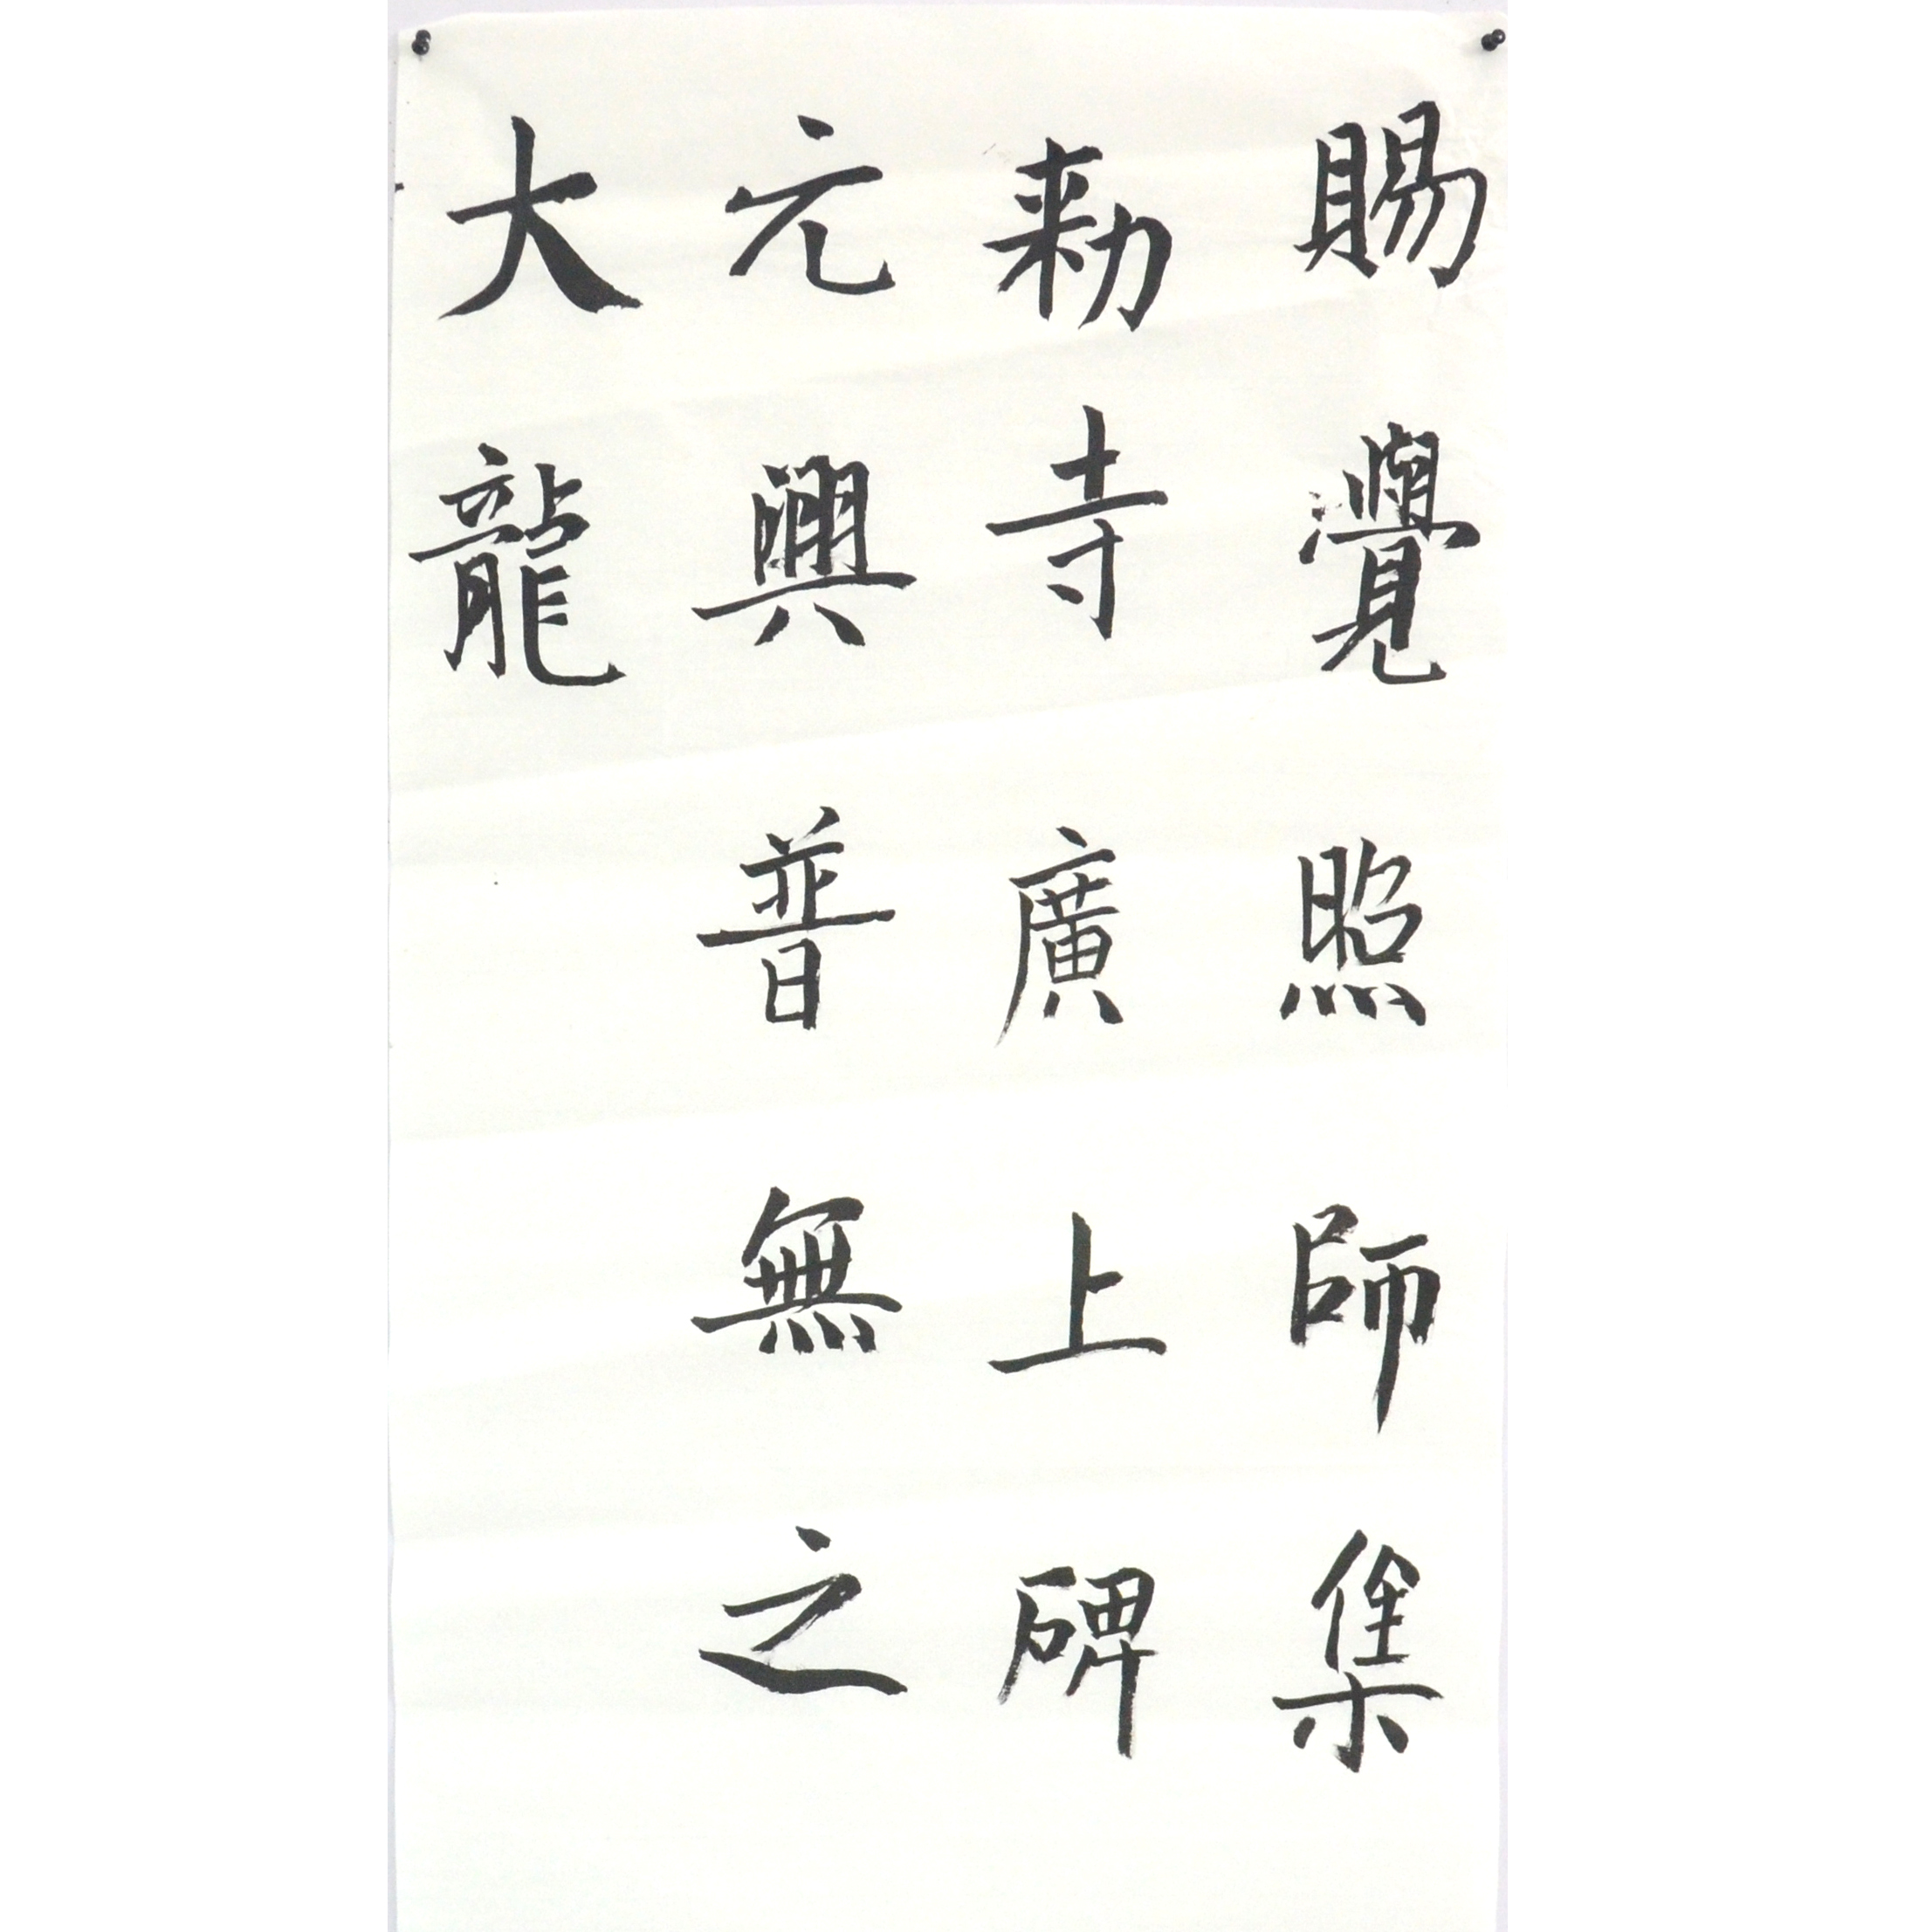 大元勑賜
龍興寺覺
普廣照
無上師
之碑集